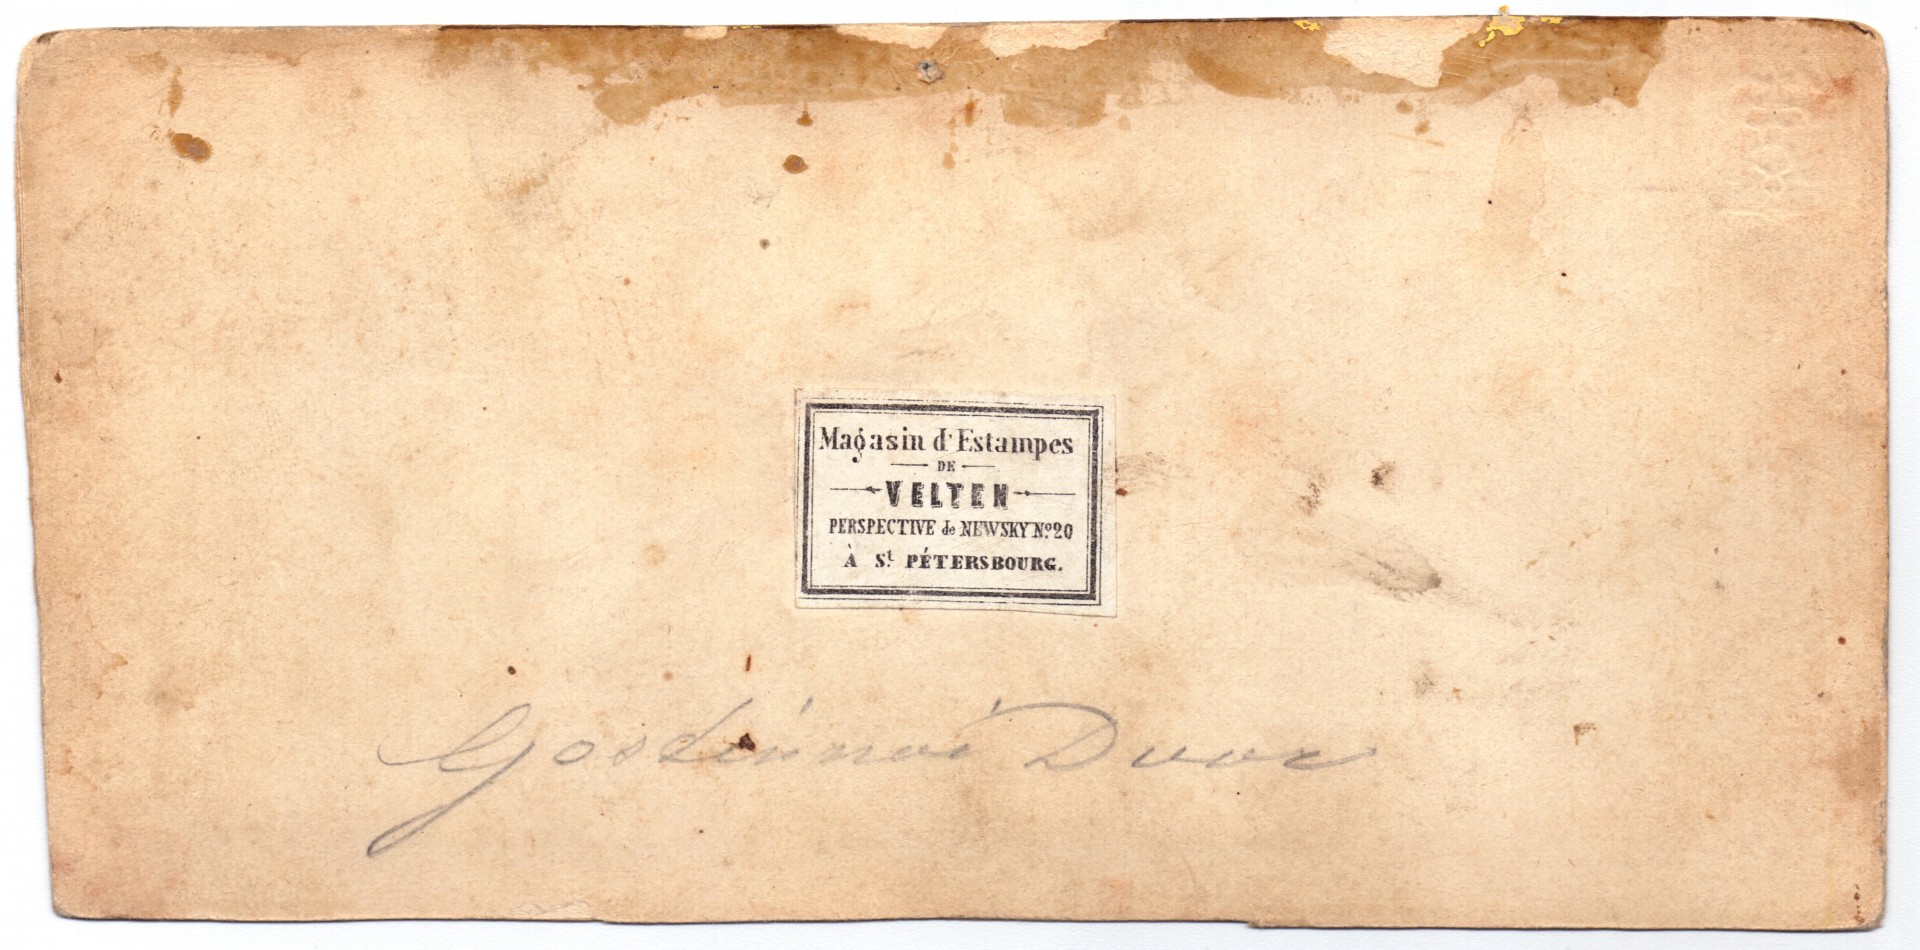 Magasin d'Estampes
DE
VELTEN
PERSPECTIVE de NEWSKY Nº 20
À St. PÉTERSBOURG.
Gostinnoi Dvor